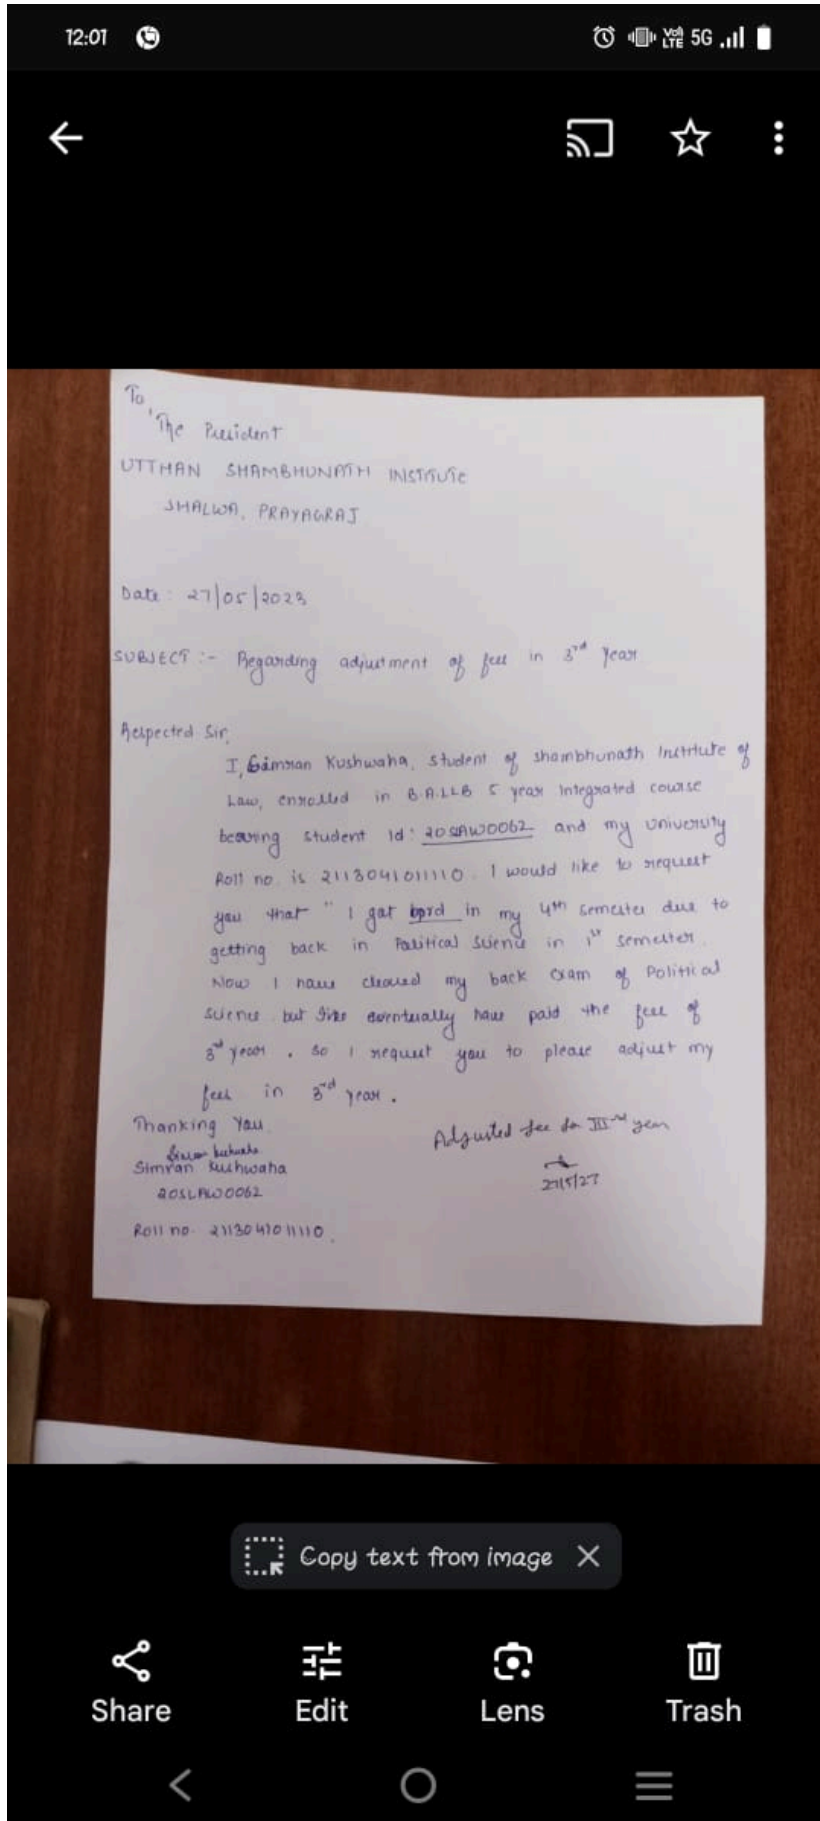 12:01
Vo) LTE 5G
To,
The President
UTTHAN SHAMBHUNATH INSTITUTE
JHALWA, PRAYAGRAJ
Date: 27/05/2023
SUBJECT :- Regarding adjustment of fees in 3rd Year
Respected Sir,
I, Simran Kushwaha, student of Shambhunath Institute of
Law, enrolled in B.A.LLB 5 year Integrated course
bearing student id: 20SLAW0062 and my University
Roll no. is 2113041011110. I would like to request
you that " I got in my 4th semester due to
getting back in Political Science in 1st semester.
Now I have cleared my back exam of Political
Science but eventually have paid the fees of
3rd year. So I request you to please adjust my
fees in 3rd year.
Thanking You
Adjusted fee for IIIrd year
Simran Kushwaha
Simran Kushwaha
20SLAW0062
27/5/27
Roll no. 2113041011110.
Copy text from image
Share Edit Lens Trash